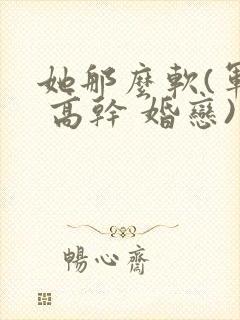 她那麼軟(軍
高幹 婚戀)
暢心齋